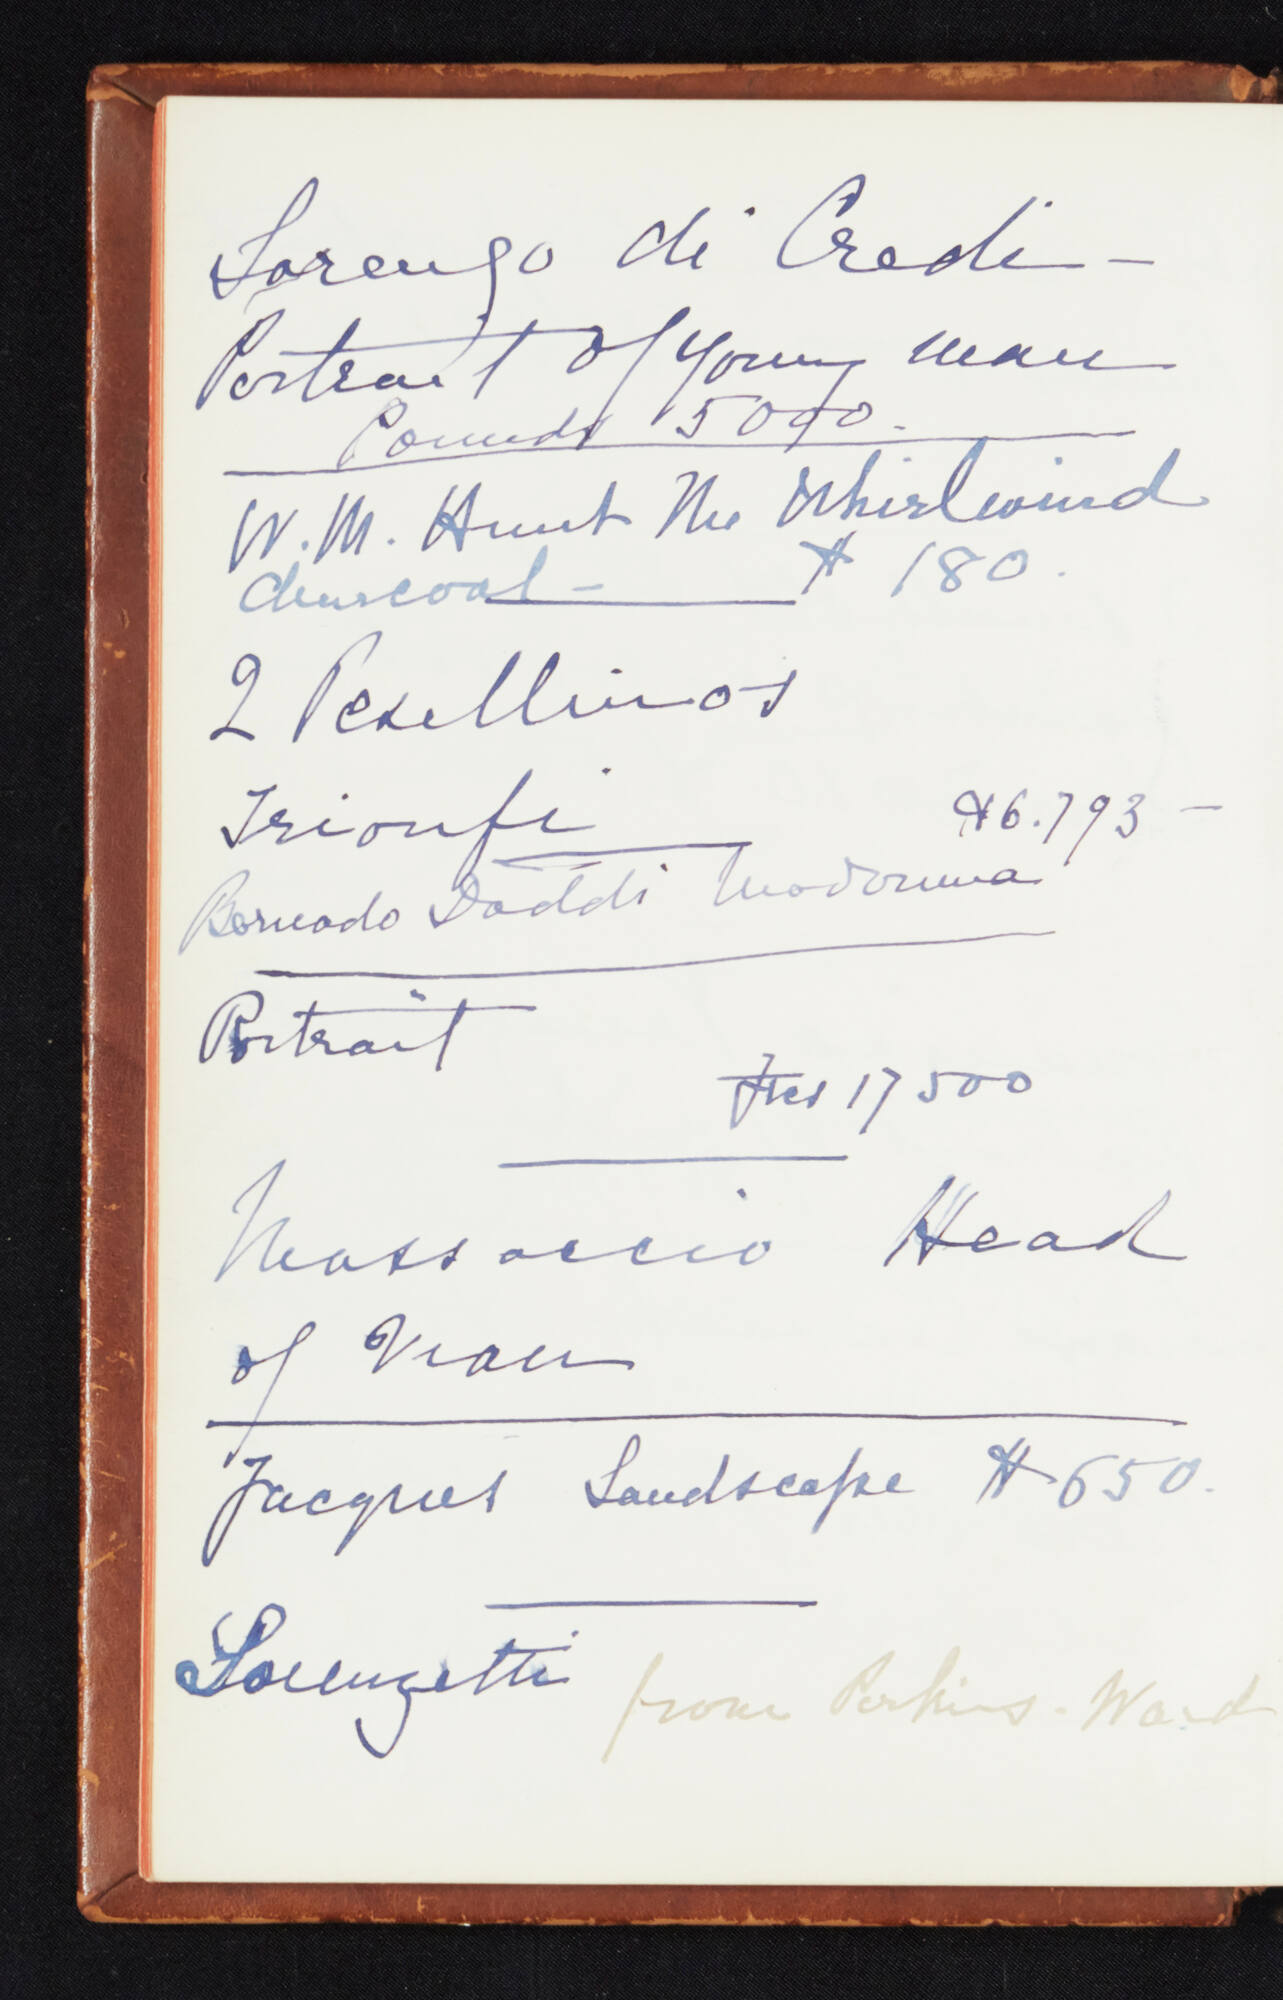 Lorenzo di Credi –
Portrait of young man
Pounds 5000.
W. M. Hunt The Whirlwind
charcoal – $ 180.
2 Pesellinos
Trionfi $6.793 –
Bernado Daddi Madonna
Portrait
Frcs 17500
Massaccio Head
of Man
Jacques Landscape $ 650.
Lorenzetti from Perkins - Ward